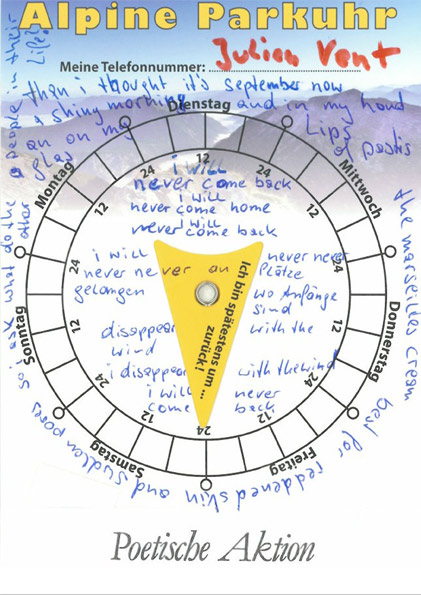 Alpine Parkuhr
Meine Telefonnummer: Julien Vent
a people in their
life?
then i thought it's september now
a shiny morning and in my hand
an on my Lips
glas of pastis
Dienstag
Mittwoch
Donnerstag
Freitag
Samstag
Sonntag
Montag
12
24
12
24
12
24
12
24
12
24
12
24
12
24
i will
never come back
i will
never come home
i will
never come back
i will never never
never never an Plätze
gelangen wo Anfänge
sind
disappear with the
wind
i disappear with the wind
i will never
come back
Ich bin spätestens um ...
zurück!
the marseilles cream
best for reddened skin and sudden pores
so i ask what do the other
Poetische Aktion